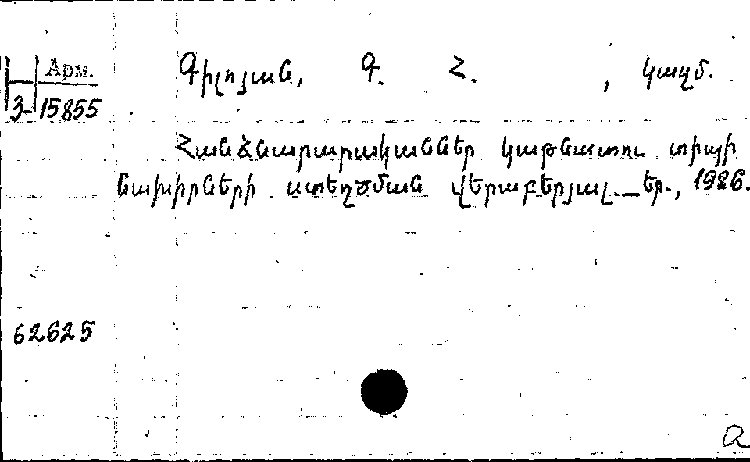 Арм.
3-15855
Գիլոյան, Գ. Հ. , կազմ.
Հանձնարարականներ կաթնատու տիպի
նախիրների ստեղծման վերաբերյալ._Եր., 1986.
62625
a